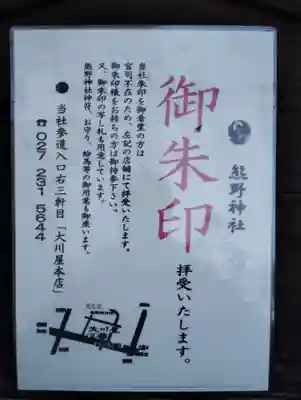 熊野神社
御朱印
拝受いたします。
当社朱印を御希望の方は
宮司不在のため、左記の店舗にて拝受いたします。
御朱印帳をお持ちの方は御持参下さい。
又、御朱印の写し札も用意しています。
熊野神社神符、お守り、絵馬等の御用意も御座います。
当社参道入口右三軒目「大川屋本店」
☎027 231 5644